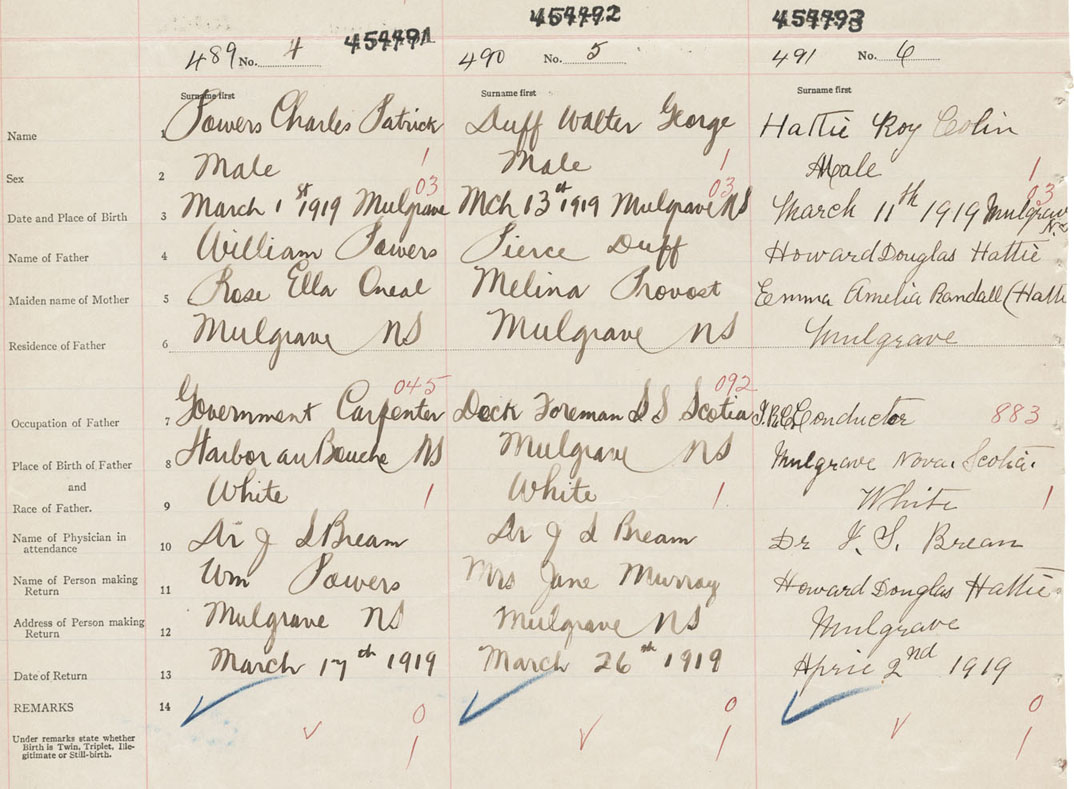 454491 454492 454493
489 No. 4 490 No. 5 491 No. 6
Surname first Surname first Surname first
Name 1 Powers Charles Patrick Duff Walter George Hattie Roy Colin
Sex 2 Male 1 Male 1 Male 1
03 03 03
Date and Place of Birth 3 March 1st 1919 Mulgrave Mch 13th 1919 Mulgrave NS March 11th 1919 Mulgrave N.S
Name of Father 4 William Powers Pierce Duff Howard Douglas Hattie
Maiden name of Mother 5 Rose Ella Oneal Melina Provost Emma Amelia Randall (Hatti
Residence of Father 6 Mulgrave NS Mulgrave NS Mulgrave
045 092
Occupation of Father 7 Government Carpenter Deck Foreman SS Scotia Conductor 883
Place of Birth of Father 8 Harbor au Bouche NS Mulgrave NS Mulgrave Nova Scotia.
and
Race of Father. 9 White 1 White 1 White 1
Name of Physician in
attendance 10 Dr J S Bream Dr J S Bream Dr J. S. Brean
Name of Person making
Return 11 Wm Powers Mrs Jane Murray Howard Douglas Hattie
Address of Person making
Return 12 Mulgrave NS Mulgrave NS Mulgrave
Date of Return 13 March 17th 1919 March 26th 1919 April 2nd 1919
REMARKS 14 0 0 0
Under remarks state whether
Birth is Twin, Triplet, Ille-
gitimate or Still-birth. 1 1 1